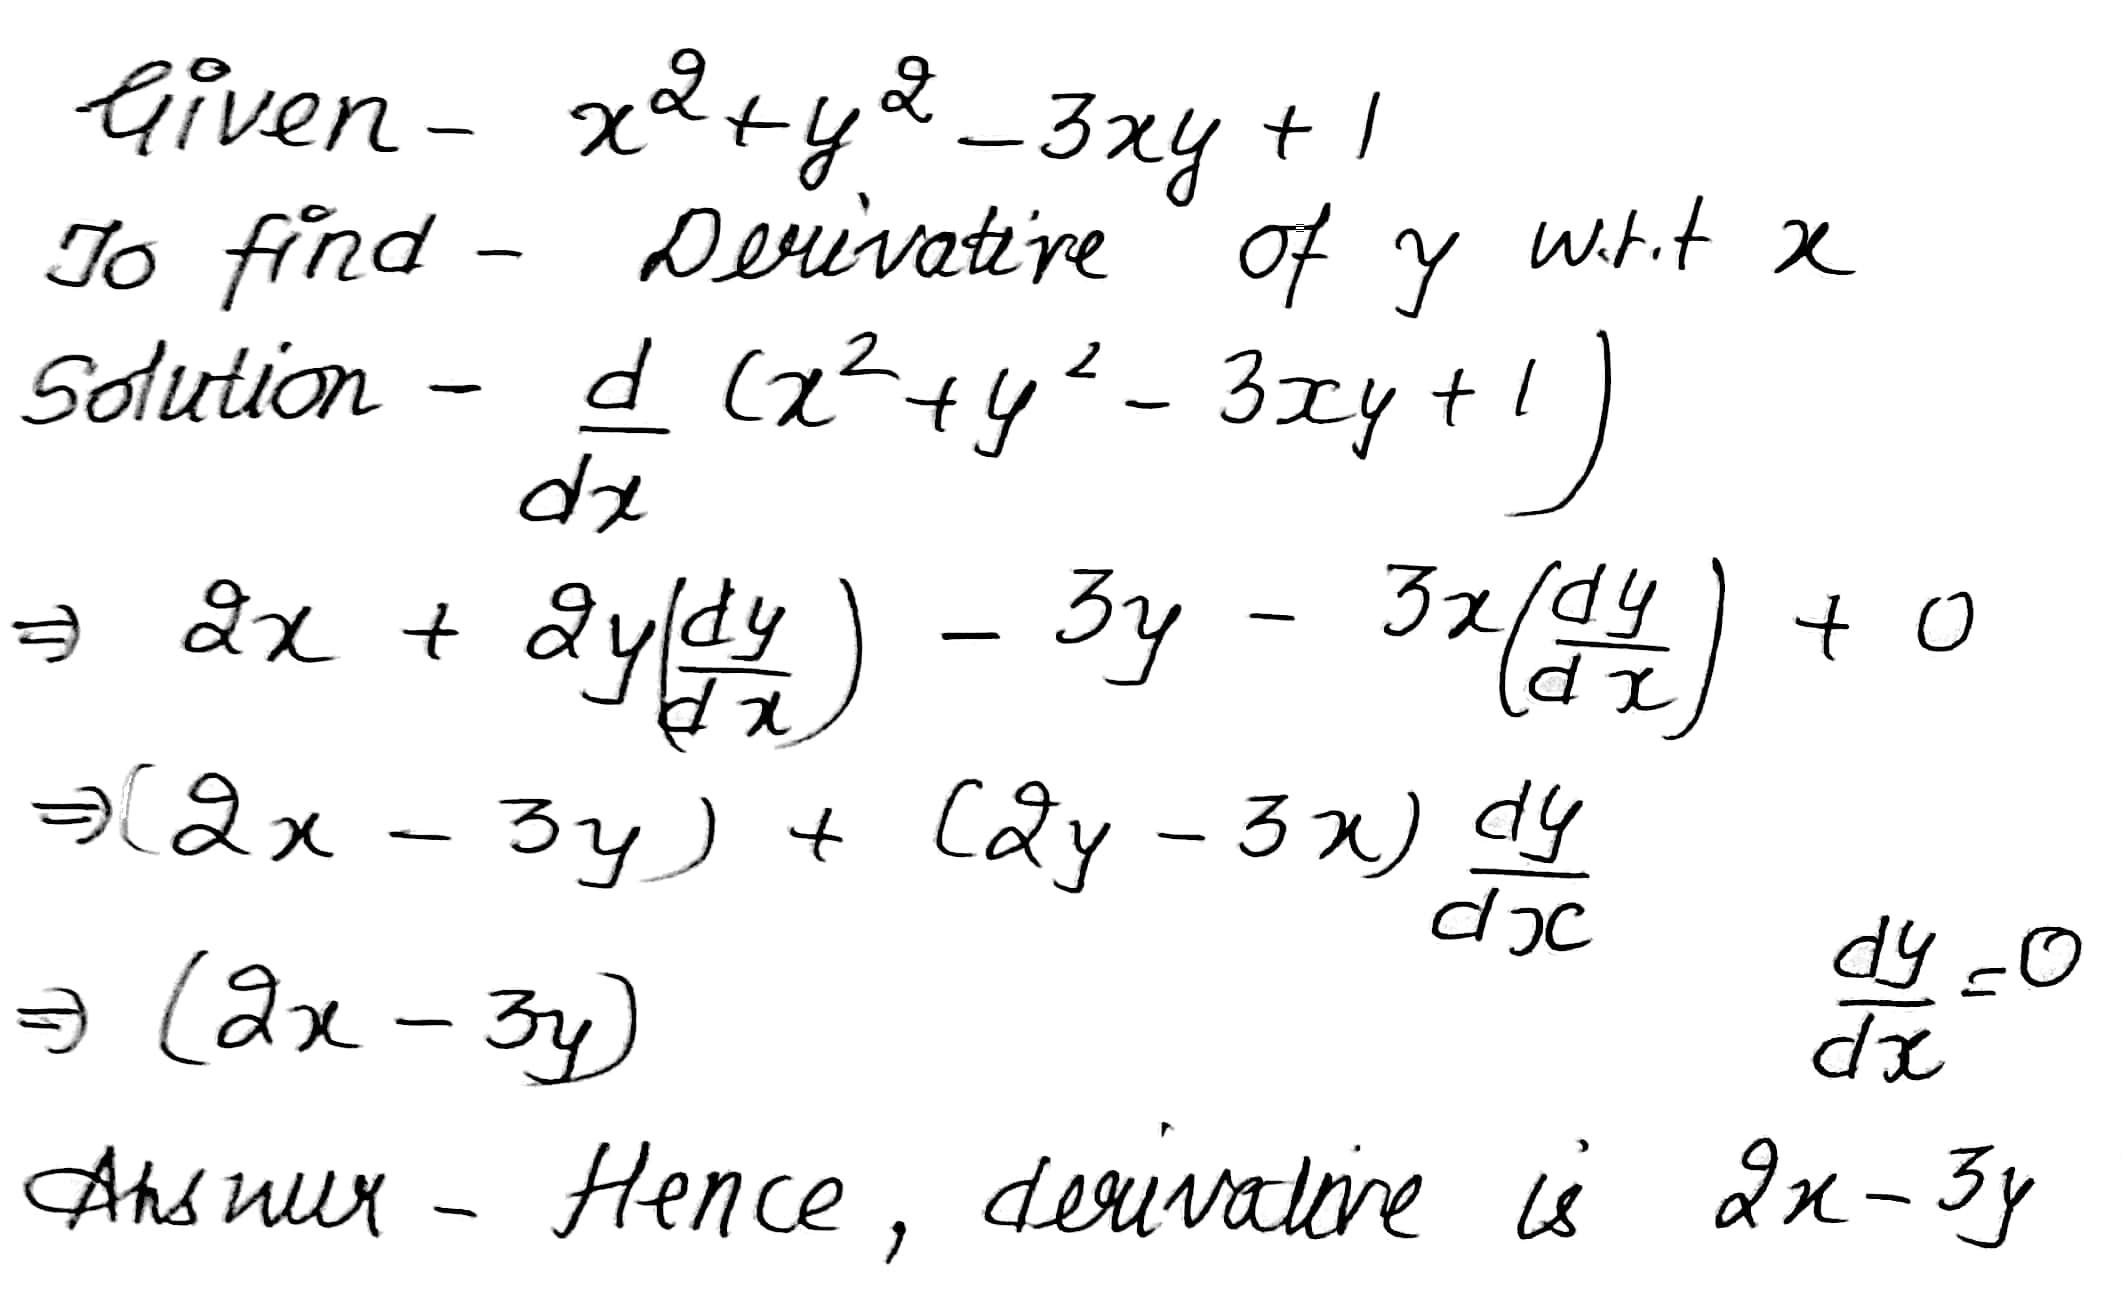 Given - x² + y² - 3xy + 1
To find - Derivative of y w.r.t x
Solution - d/dx (x² + y² - 3xy + 1)
⇒ 2x + 2y(dy/dx) - 3y - 3x(dy/dx) + 0
⇒ (2x - 3y) + (2y - 3x) dy/dx
⇒ (2x - 3y) dy/dx = 0
Answer - Hence, derivative is 2x - 3y